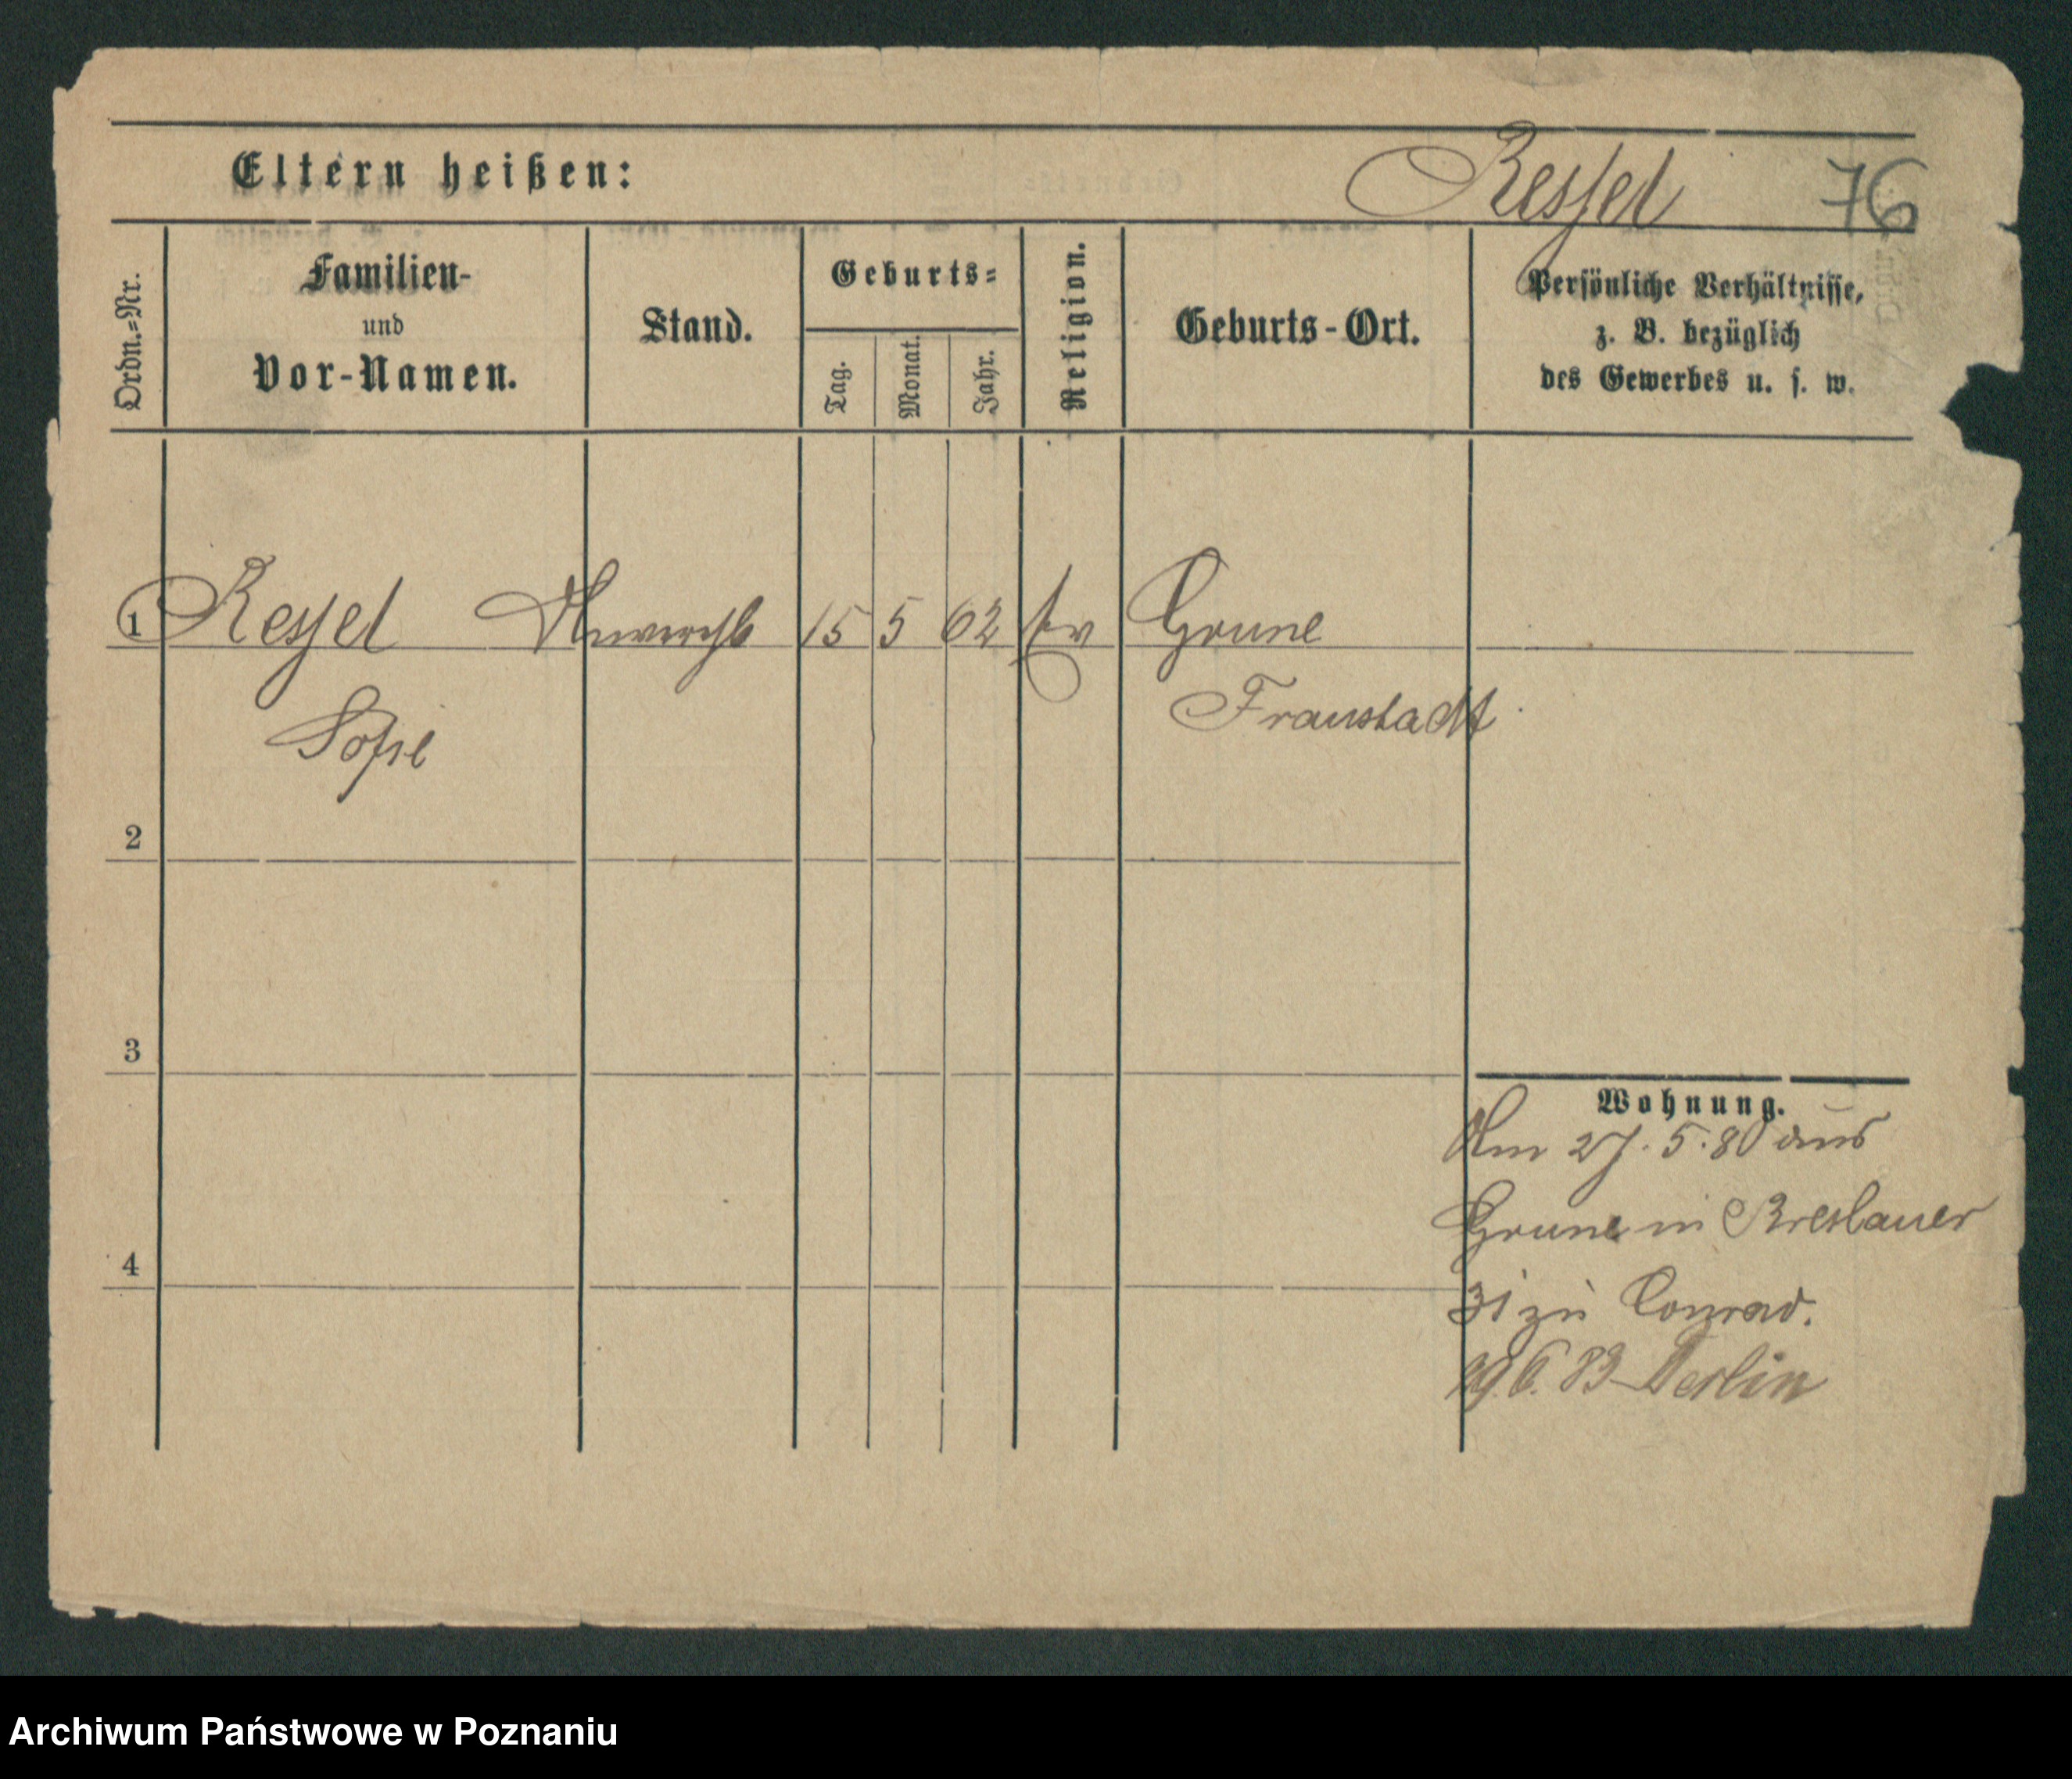 Eltern heißen:
Ressel 76
Ordn.=Nr.
Familien-
und
Vor-Namen.
Stand.
Geburts=
Tag.
Monat.
Jahr.
Religion.
Geburts-Ort.
Persönliche Verhältnisse,
z. B. bezüglich
des Gewerbes u. s. w.
1 Ressel 15 5 62 ev Grune
Fraustadt
Sofie
2
3
4
Wohnung.
Am 27. 5. 80 aus
Grune in Breslauer
31 zu Conrad.
29.6.83 Berlin
Archiwum Państwowe w Poznaniu